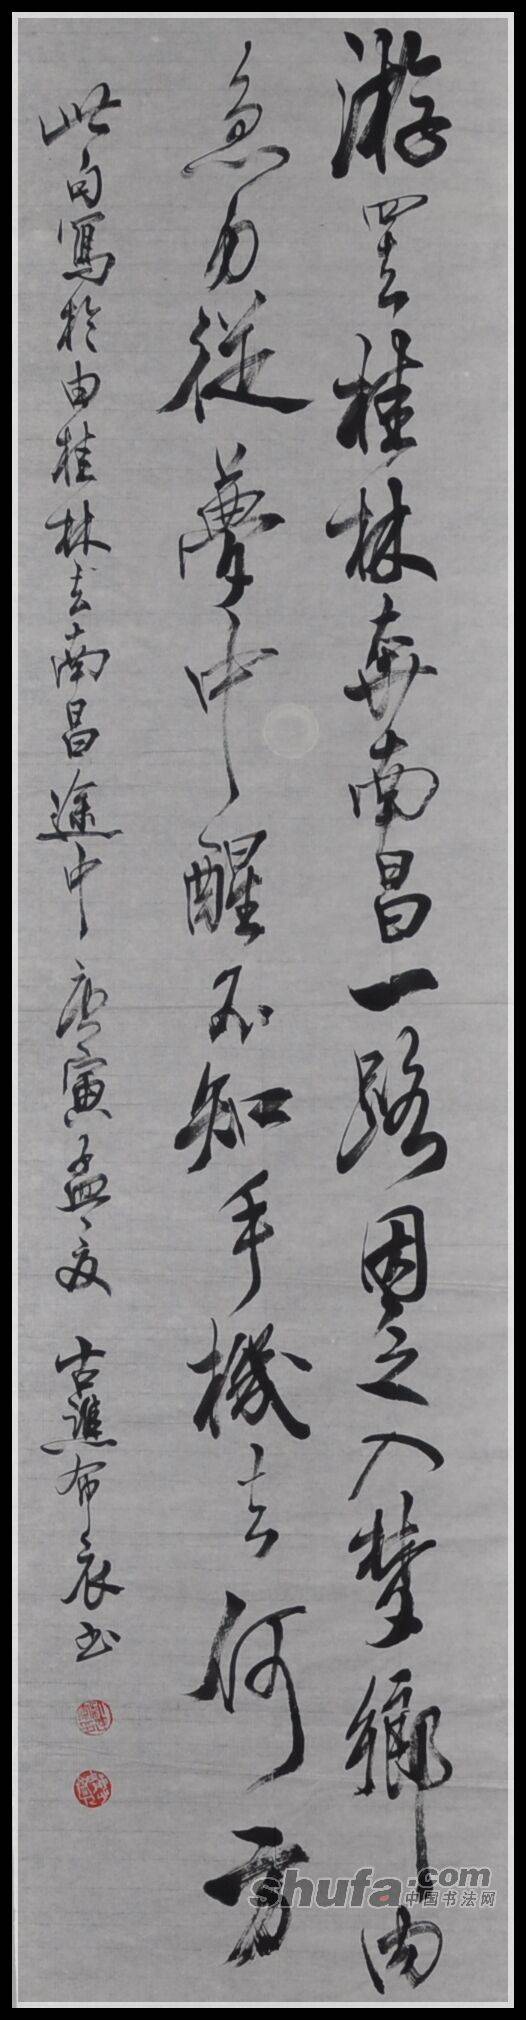 游罢桂林奔南昌一路困乏入梦鄉内
急匆從夢中醒不知手機去何方
此句寫於由桂林去南昌途中 庚寅孟夏 古譙布衣书
shufa.com
中国书法网